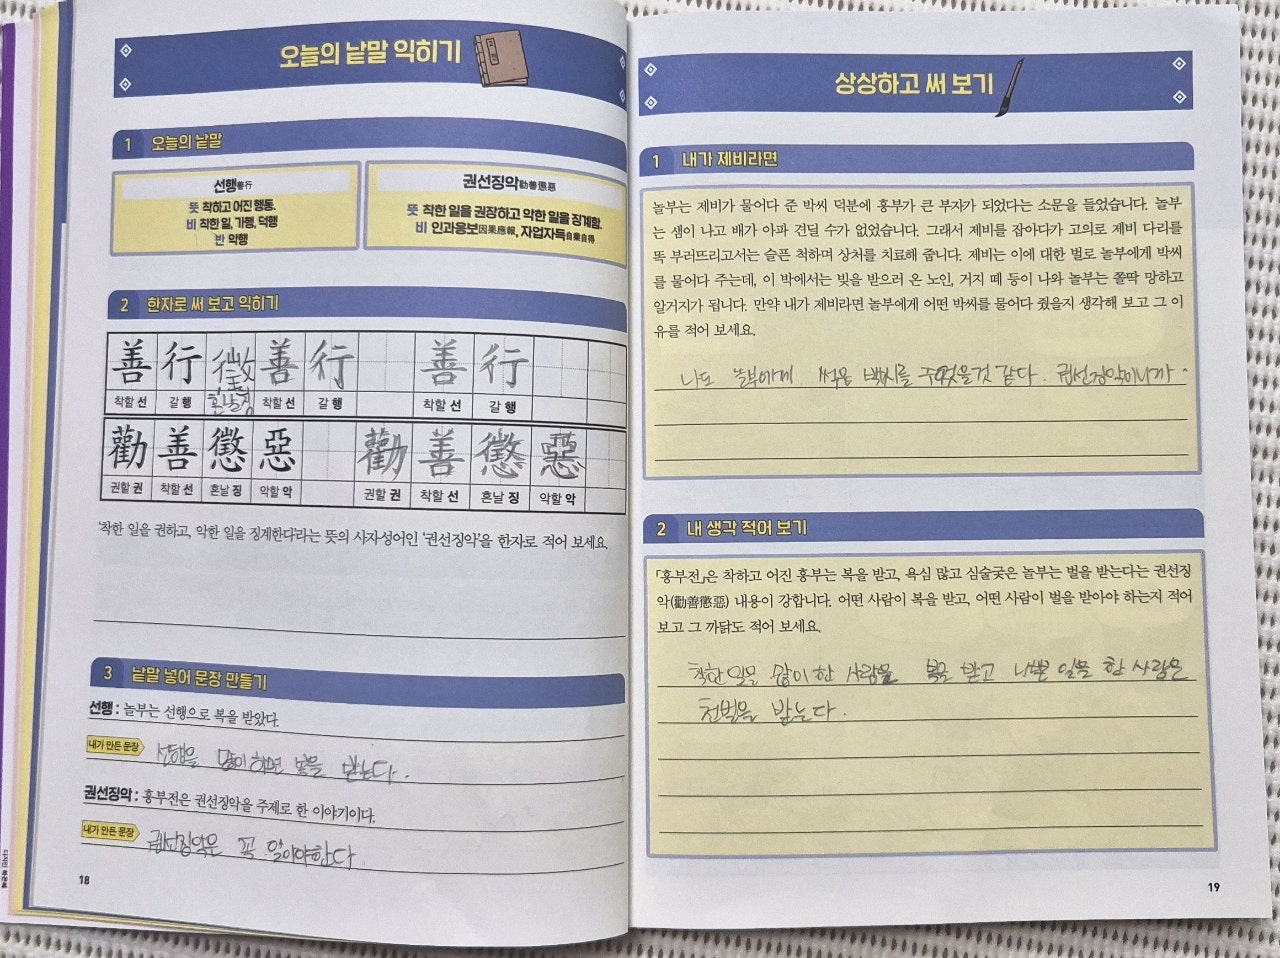 오늘의 낱말 익히기
1 오늘의 낱말
선행善行
뜻 착하고 어진 행동.
비 착한 일, 가행, 덕행
반 악행
권선징악勸善懲惡
뜻 착한 일을 권장하고 악한 일을 징계함.
비 인과응보因果應報, 자업자득自業自得
2 한자로 써 보고 익히기
善 行 徵 善 行 善 行
착할 선 갈 행 혼날 징 착할 선 갈 행 착할 선 갈 행
勸 善 懲 惡 勸 善 懲 惡
권할 권 착할 선 혼날 징 악할 악 권할 권 착할 선 혼날 징 악할 악
'착한 일을 권하고, 악한 일을 징계한다'라는 뜻의 사자성어인 '권선징악'을 한자로 적어 보세요.
3 낱말 넣어 문장 만들기
선행 : 놀부는 선행으로 복을 받았다.
내가 만든 문장 선행을 많이 하면 복을 받는다.
권선징악 : 흥부전은 권선징악을 주제로 한 이야기이다.
내가 만든 문장 권선징악은 꼭 알아야한다
18
상상하고 써 보기
1 내가 제비라면
놀부는 제비가 물어다 준 박씨 덕분에 흥부가 큰 부자가 되었다는 소문을 들었습니다. 놀부
는 샘이 나고 배가 아파 견딜 수가 없었습니다. 그래서 제비를 잡아다가 고의로 제비 다리를
똑 부러뜨리고서는 슬픈 척하며 상처를 치료해 줍니다. 제비는 이에 대한 벌로 놀부에게 박씨
를 물어다 주는데, 이 박에서는 빚을 받으러 온 노인, 거지 떼 등이 나와 놀부는 쫄딱 망하고
알거지가 됩니다. 만약 내가 제비라면 놀부에게 어떤 박씨를 물어다 줬을지 생각해 보고 그 이
유를 적어 보세요.
나도 놀부에게 썩은 박씨를 주었을것 같다. 권선징악이니까.
2 내 생각 적어 보기
「흥부전」은 착하고 어진 흥부는 복을 받고, 욕심 많고 심술궂은 놀부는 벌을 받는다는 권선징
악(勸善懲惡) 내용이 강합니다. 어떤 사람이 복을 받고, 어떤 사람이 벌을 받아야 하는지 적어
보고 그 까닭도 적어 보세요.
착한 일을 많이 한 사람을 복을 받고 나쁜 일을 한 사람은
천벌을 받는다.
19